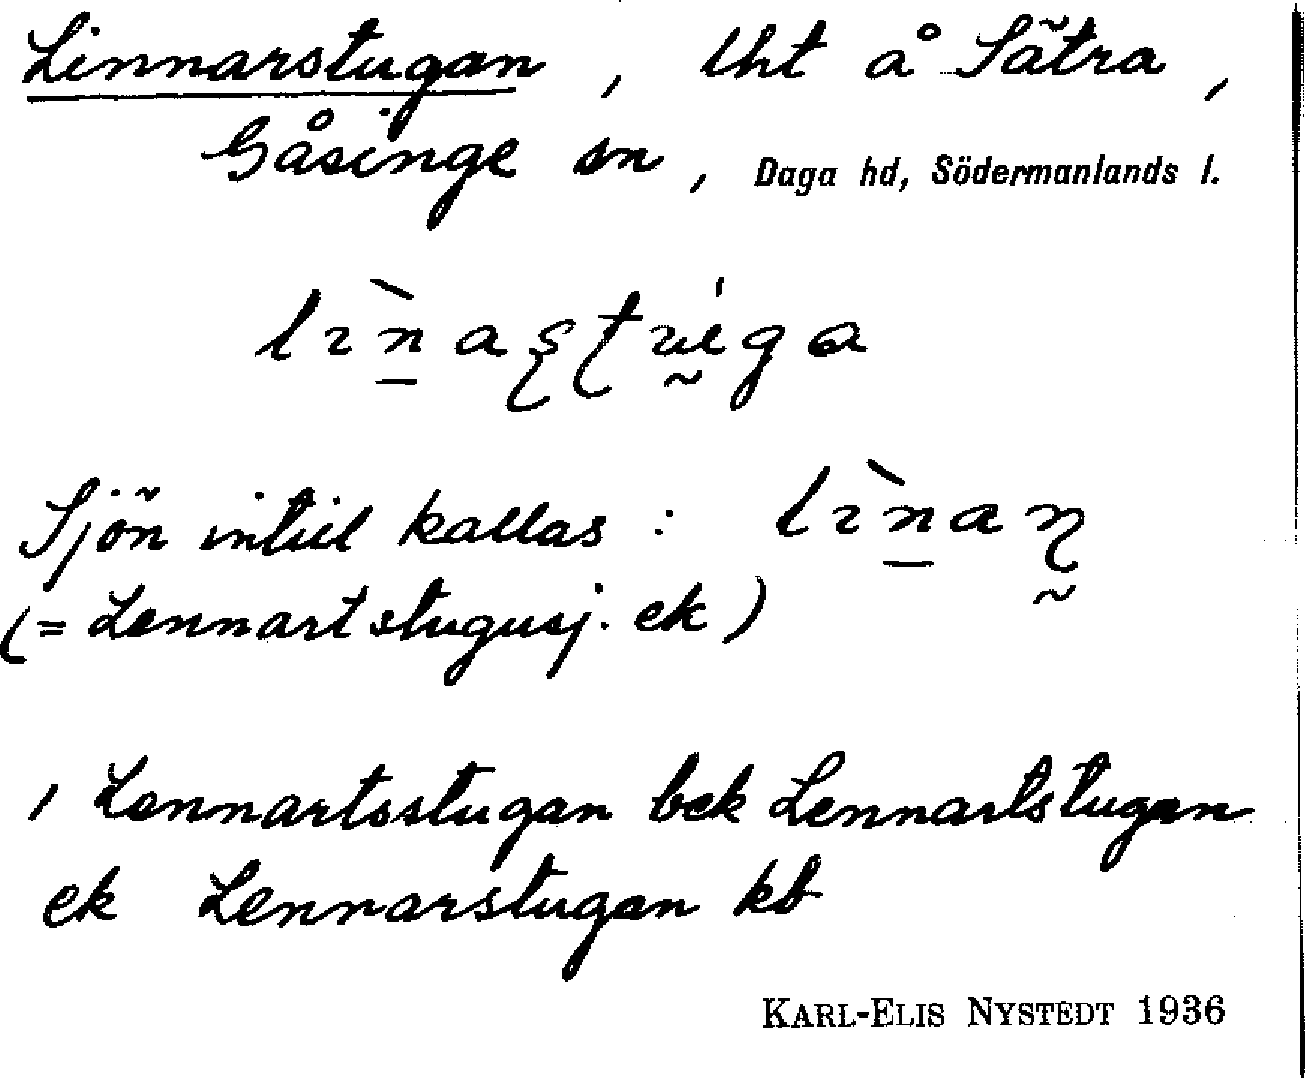 Linnarstugan, lht å Sätra,
Gåsinge sn, Daga hd, Södermanlands l.
Sjön intill kallas:
(= Lennartstugusj. ek)
/ Lennartsstugan bek Lennartstugan
ek Lennarstugan kb
KARL-ELIS NYSTEDT 1936